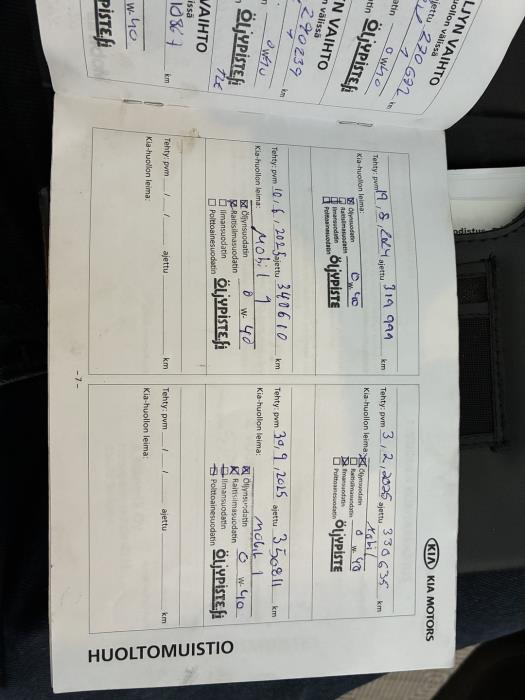 KIA KIA MOTORS
HUOLTOMUISTIO
Tehty: pvm 19, 8, 2024 ajettu 319 999 km
Kia-huollon leima:
Öljynsuodatin
Raitisilmasuodatin
Ilmansuodatin
Polttoainesuodatin
0 W- 40
ÖLJYPISTE
Tehty: pvm 3, 2, 2025 ajettu 330 635 km
Kia-huollon leima:
Öljynsuodatin
Raitisilmasuodatin
Ilmansuodatin
Polttoainesuodatin
Mobil
0 W- 40
ÖLJYPISTE
Tehty: pvm 10, 6, 2025 ajettu 340610 km
Kia-huollon leima:
Mobil 1
Öljynsuodatin
Raitisilmasuodatin
Ilmansuodatin
Polttoainesuodatin
0 W- 40
ÖLJYPISTE.fi
Tehty: pvm 30, 9, 2025 ajettu 350811 km
Kia-huollon leima:
Mobil 1
Öljynsuodatin
Raitisilmasuodatin
Ilmansuodatin
Polttoainesuodatin
0 W- 40
ÖLJYPISTE.fi
Tehty: pvm / / ajettu km
Kia-huollon leima:
Tehty: pvm / / ajettu km
Kia-huollon leima:
-7-
LJYN VAIHTO
270 672
km
0W40
ÖLJYPISTE.fi
N VAIHTO
n välissä
290239
km
0W40
ÖLJYPISTE.fi
VAIHTO
km
W40